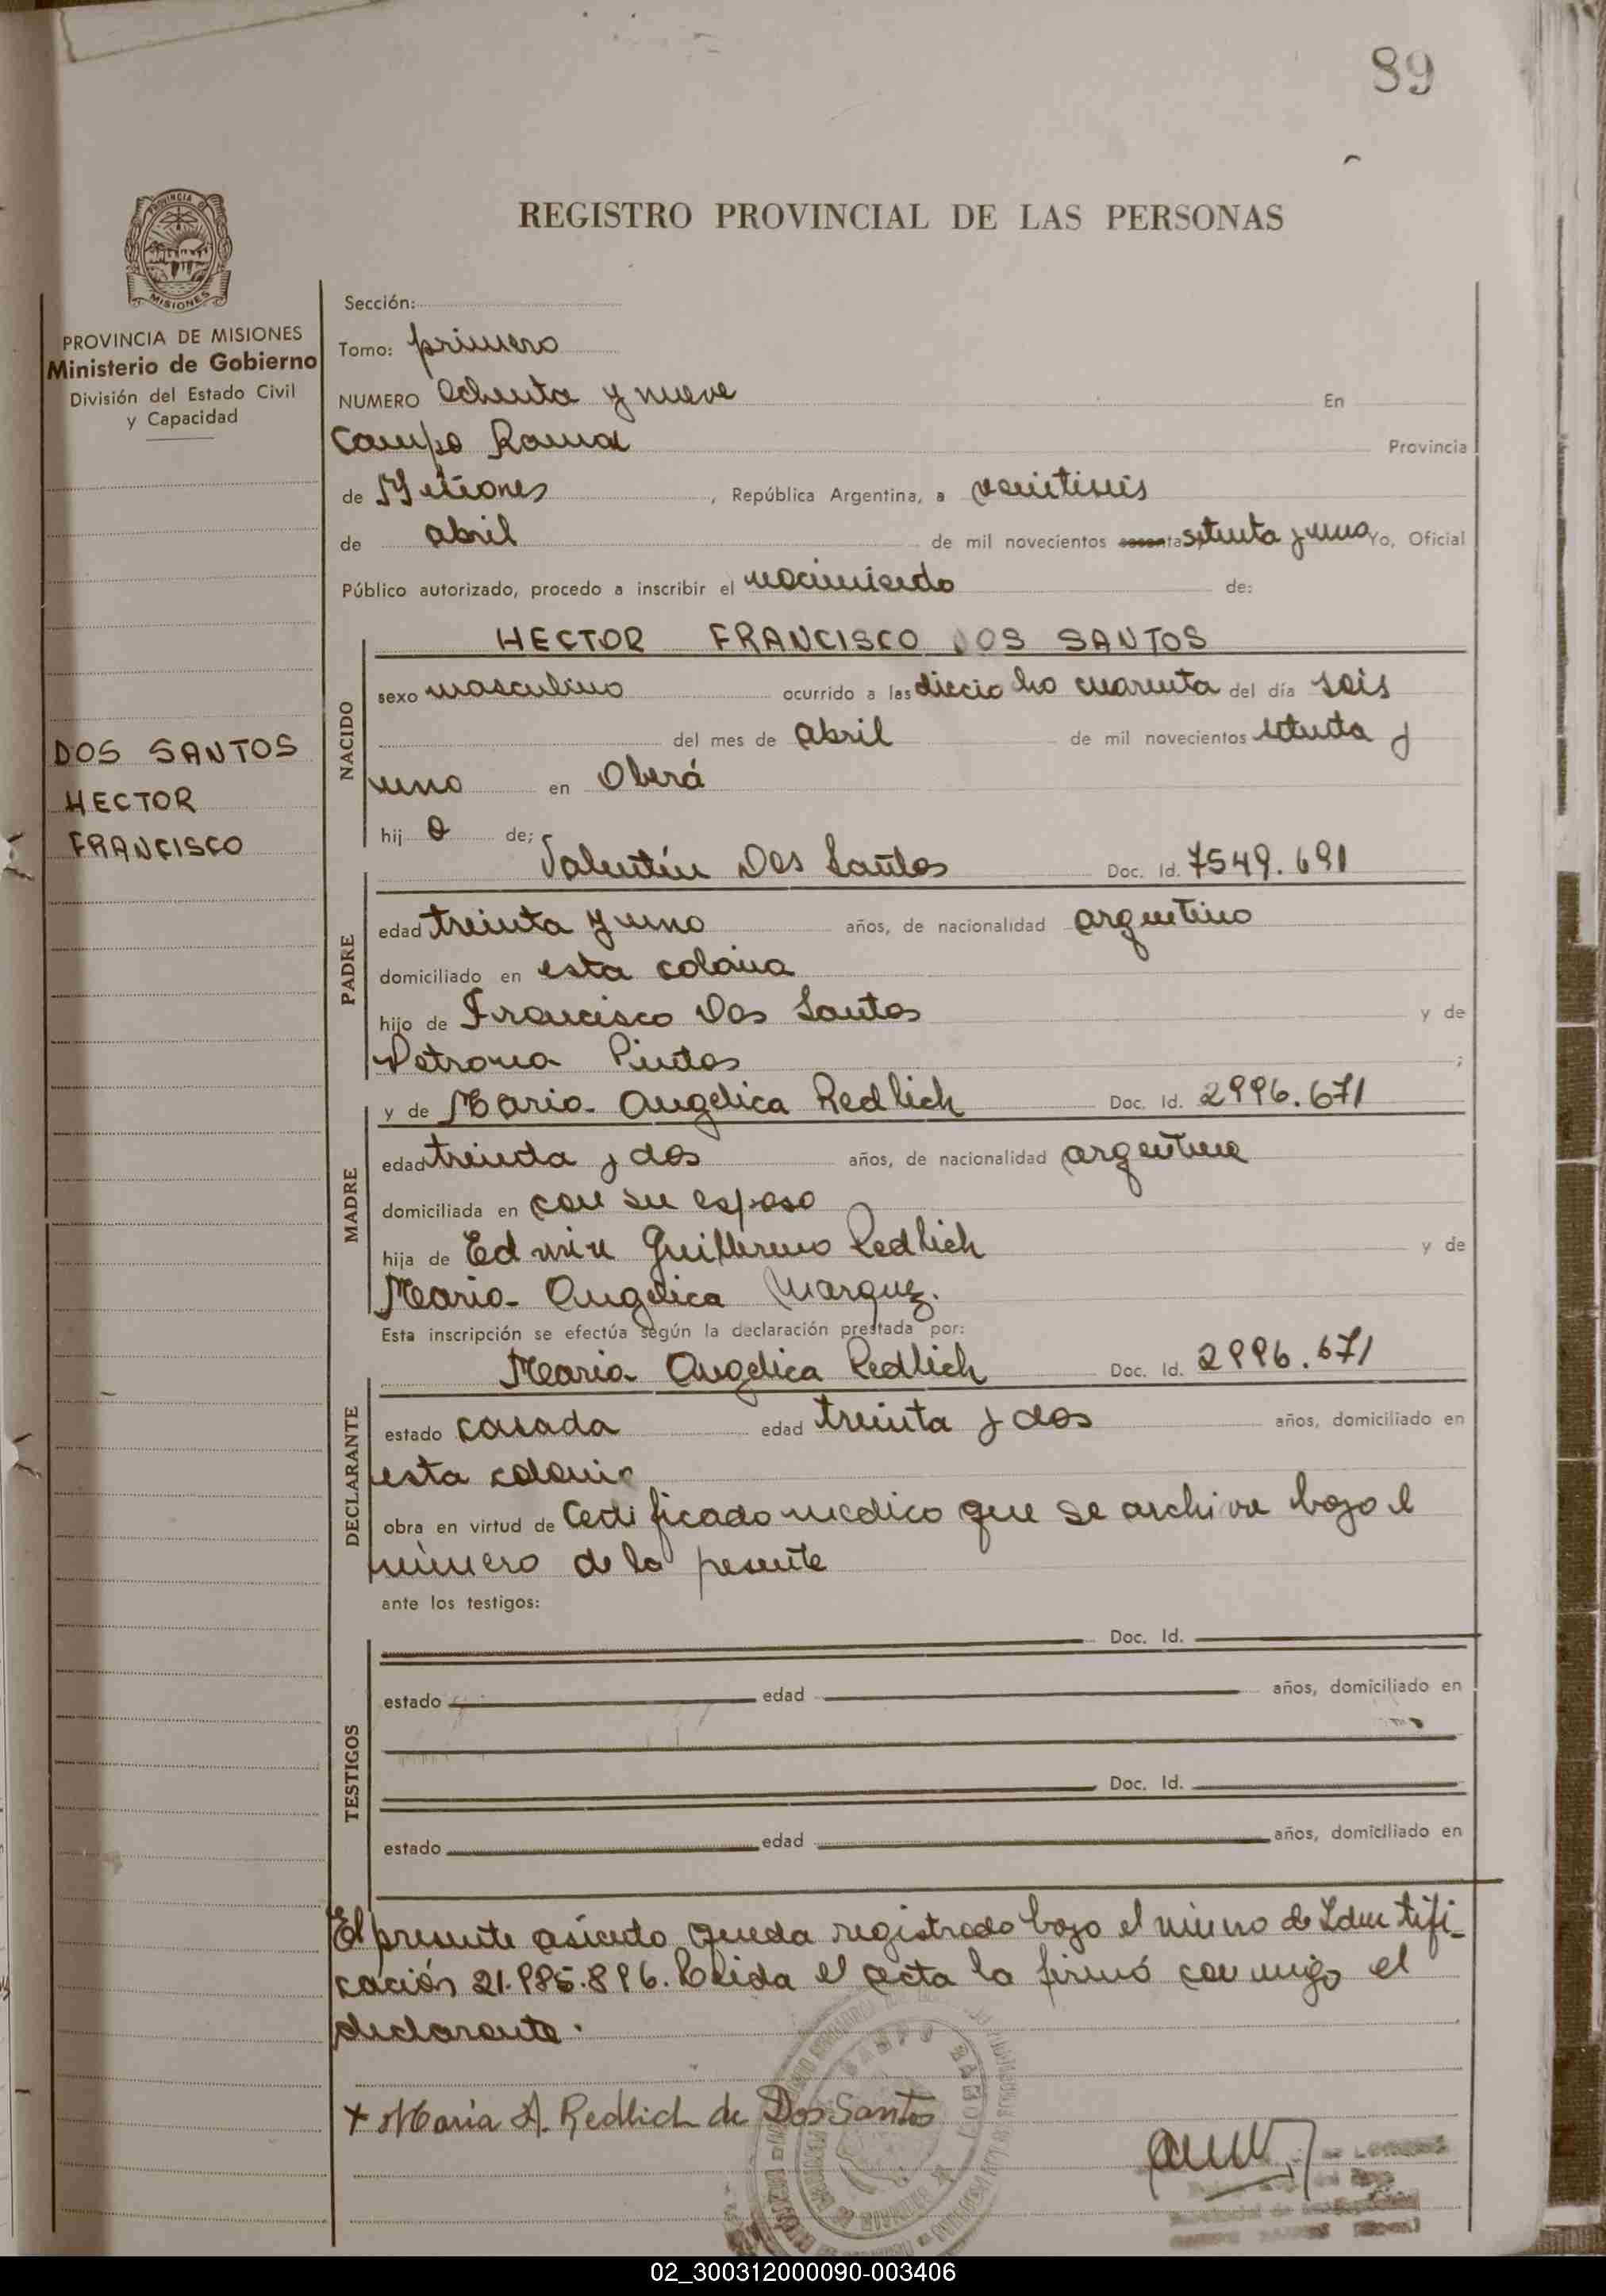 89
REGISTRO PROVINCIAL DE LAS PERSONAS
PROVINCIA DE MISIONES
Ministerio de Gobierno
División del Estado Civil
y Capacidad
DOS SANTOS
HECTOR
FRANCISCO
Sección:
Tomo: primero
NUMERO Ochenta y nueve En
Campo Ramon Provincia
de Misiones, República Argentina, a veintiseis
de abril de mil novecientos setenta y uno Yo, Oficial
Público autorizado, procedo a inscribir el nacimiento de:
HECTOR FRANCISCO DOS SANTOS
NACIDO
sexo masculino ocurrido a las diecio ho cuarenta del día seis
del mes de abril de mil novecientos setenta y
uno en Oberá
hij o de;
Valentín Dos Santos Doc. Id. 7549.691
PADRE
edad treinta y uno años, de nacionalidad argentino
domiciliado en esta colonia
hijo de Francisco Dos Santos y de
Petrona Pintos ;
y de Maria Angelica Redlich Doc. Id. 2996.671
MADRE
edad treinta y dos años, de nacionalidad argentina
domiciliada en con su esposo
hija de Edwin Guillermo Redlich y de
Maria Angelica Marquez.
Esta inscripción se efectúa según la declaración prestada por:
Maria Angelica Redlich Doc. Id. 2996.671
DECLARANTE
estado casada edad treinta y dos años, domiciliado en
esta colonia
obra en virtud de Certificado medico que se archiva bajo el
número de la presente
ante los testigos:
TESTIGOS
Doc. Id.
estado edad años, domiciliado en
Doc. Id.
estado edad años, domiciliado en
El presente asiento queda registrado bajo el número de Identifi-
cación 21.985.896. Leida el acta la firmó con migo el
declarante.
x Maria A. Redlich de Dos Santos
02_300312000090-003406